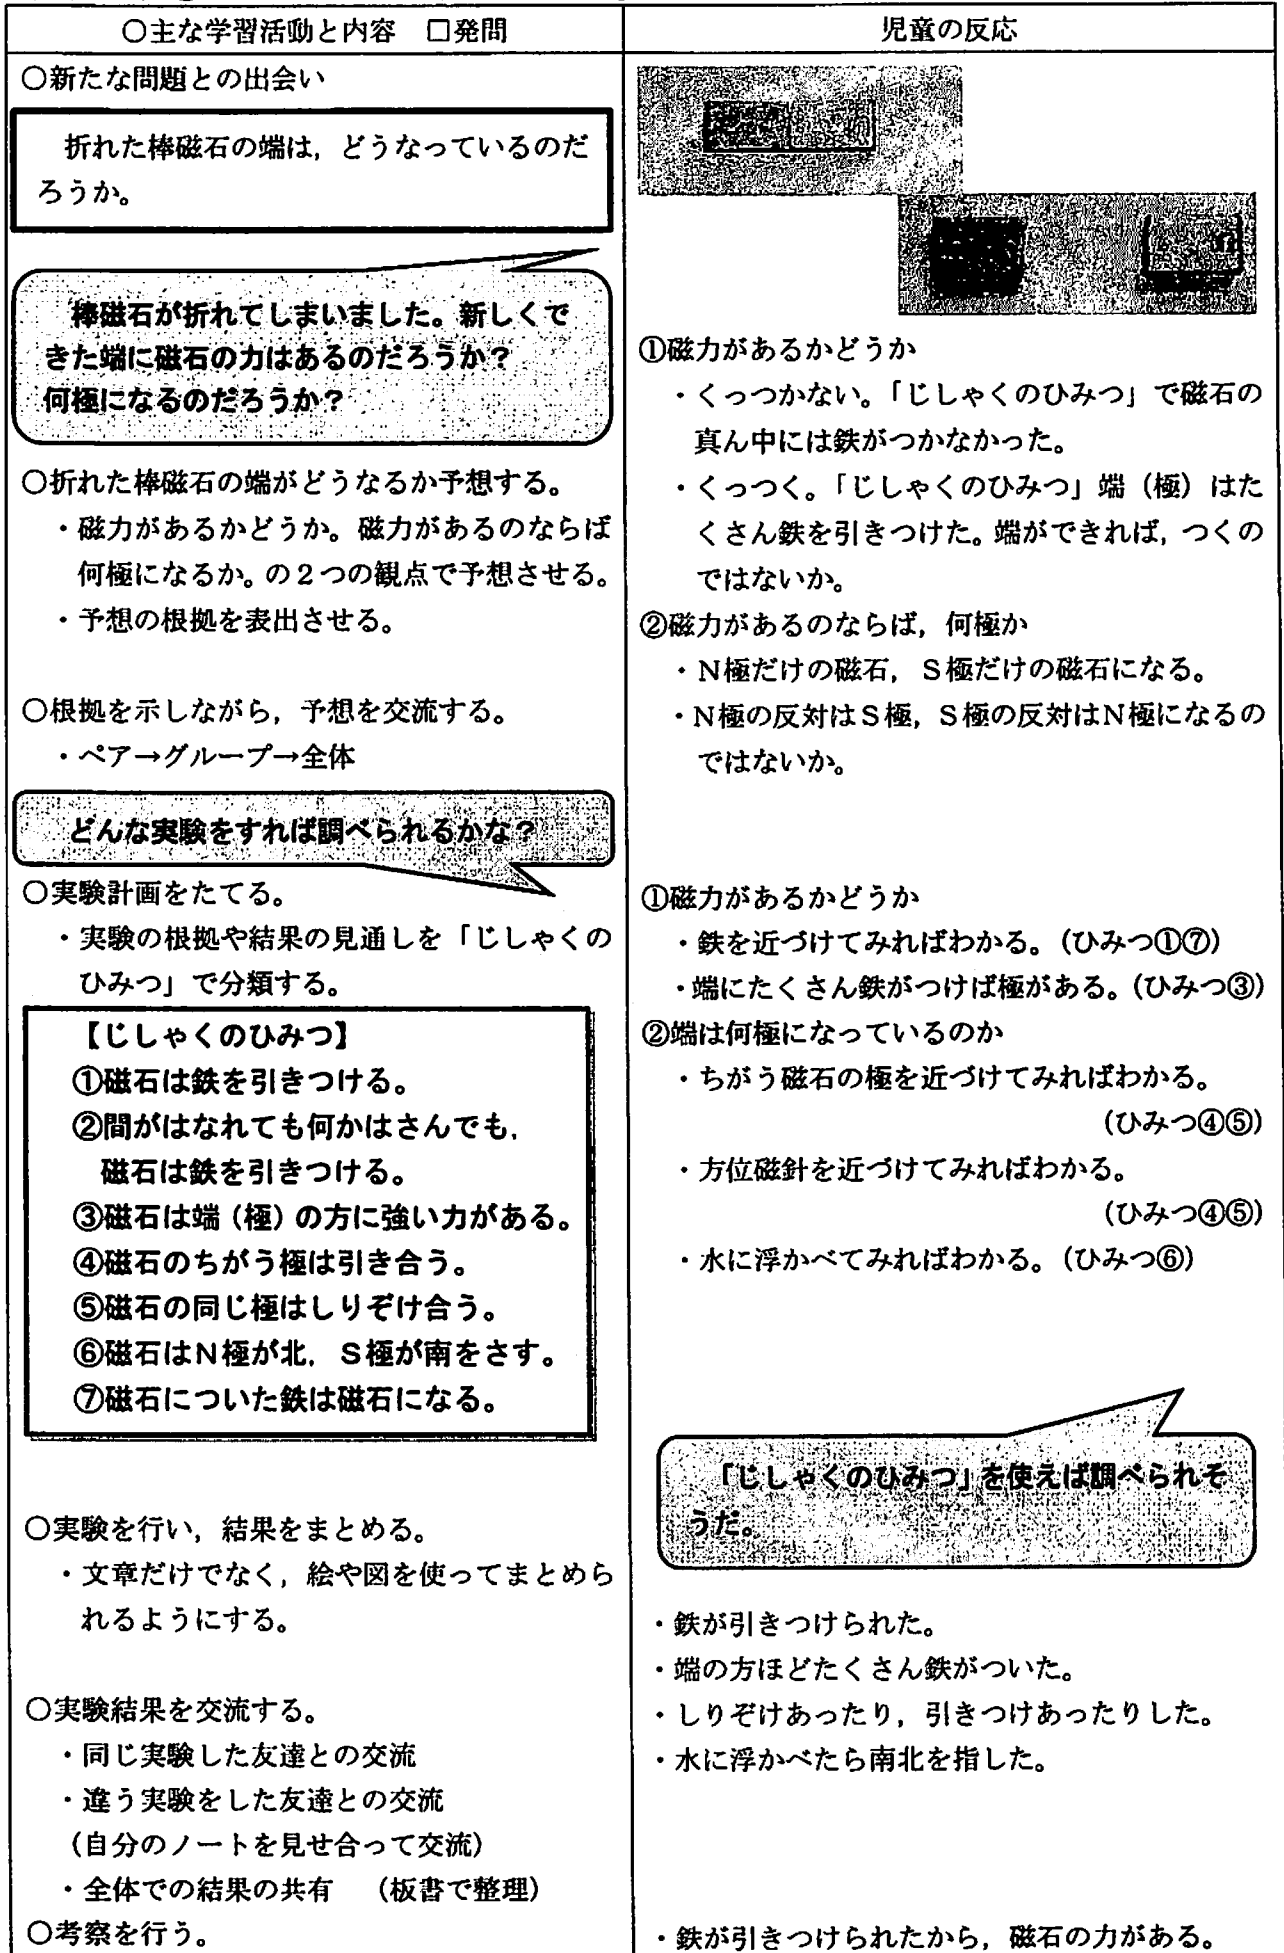 ○主な学習活動と内容　□発問
○新たな問題との出会い
折れた棒磁石の端は，どうなっているのだ
ろうか。
棒磁石が折れてしまいました。新しくで
きた端に磁石の力はあるのだろうか？
何極になるのだろうか？
○折れた棒磁石の端がどうなるか予想する。
・磁力があるかどうか。磁力があるのならば
何極になるか。の２つの観点で予想させる。
・予想の根拠を表出させる。
○根拠を示しながら，予想を交流する。
・ペア→グループ→全体
どんな実験をすれば調べられるかな？
○実験計画をたてる。
・実験の根拠や結果の見通しを「じしゃくの
ひみつ」で分類する。
【じしゃくのひみつ】
①磁石は鉄を引きつける。
②間がはなれても何かはさんでも，
磁石は鉄を引きつける。
③磁石は端（極）の方に強い力がある。
④磁石のちがう極は引き合う。
⑤磁石の同じ極はしりぞけ合う。
⑥磁石はＮ極が北，Ｓ極が南をさす。
⑦磁石についた鉄は磁石になる。
○実験を行い，結果をまとめる。
・文章だけでなく，絵や図を使ってまとめら
れるようにする。
○実験結果を交流する。
・同じ実験した友達との交流
・違う実験をした友達との交流
（自分のノートを見せ合って交流）
・全体での結果の共有　（板書で整理）
○考察を行う。
児童の反応
①磁力があるかどうか
・くっつかない。「じしゃくのひみつ」で磁石の
真ん中には鉄がつかなかった。
・くっつく。「じしゃくのひみつ」端（極）はた
くさん鉄を引きつけた。端ができれば，つくの
ではないか。
②磁力があるのならば，何極か
・Ｎ極だけの磁石，Ｓ極だけの磁石になる。
・Ｎ極の反対はＳ極，Ｓ極の反対はＮ極になるの
ではないか。
①磁力があるかどうか
・鉄を近づけてみればわかる。（ひみつ①⑦）
・端にたくさん鉄がつけば極がある。（ひみつ③）
②端は何極になっているのか
・ちがう磁石の極を近づけてみればわかる。
（ひみつ④⑤）
・方位磁針を近づけてみればわかる。
（ひみつ④⑤）
・水に浮かべてみればわかる。（ひみつ⑥）
「じしゃくのひみつ」を使えば調べられそ
うだ。
・鉄が引きつけられた。
・端の方ほどたくさん鉄がついた。
・しりぞけあったり，引きつけあったりした。
・水に浮かべたら南北を指した。
・鉄が引きつけられたから，磁石の力がある。